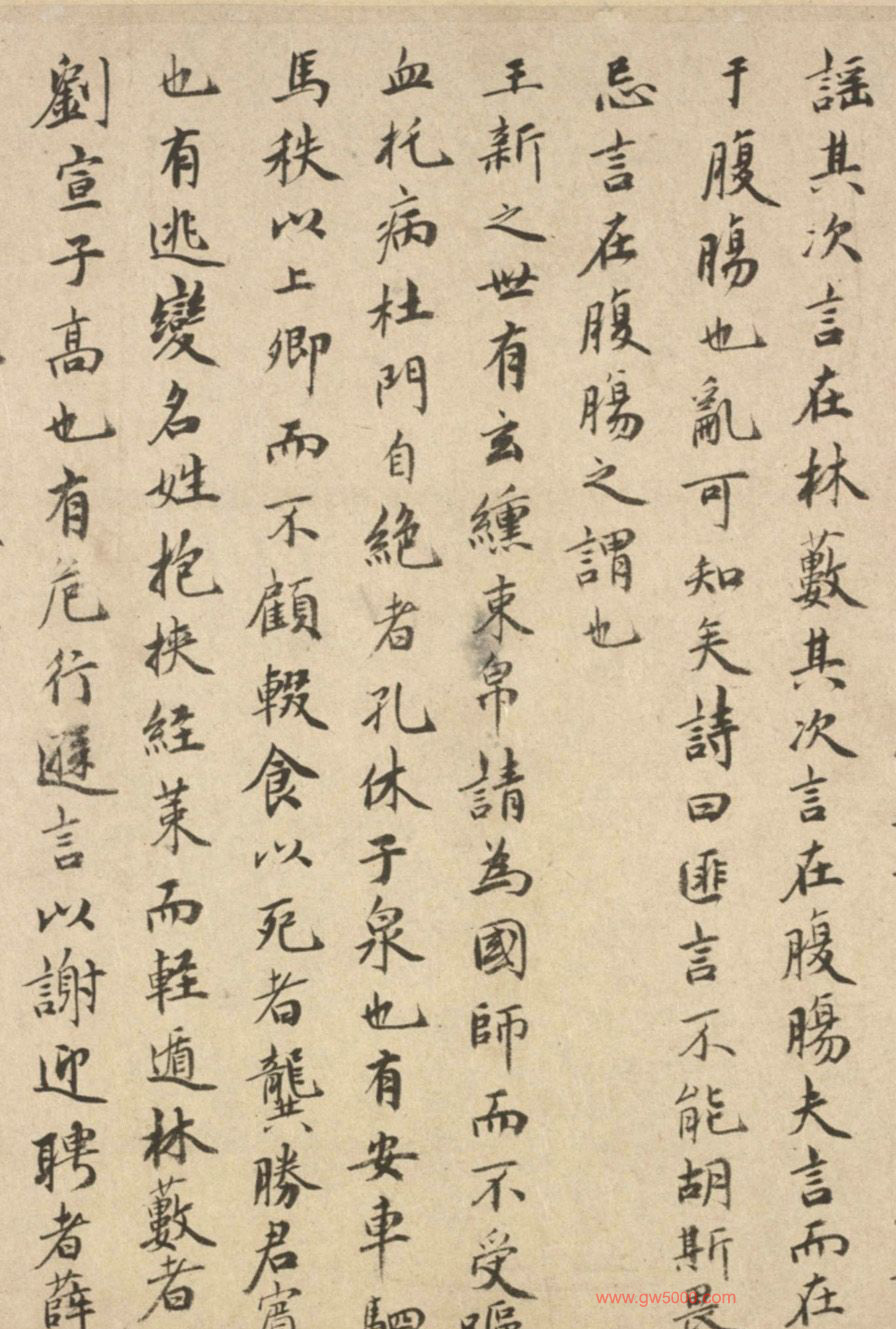 謡其次言在林藪其次言在腹腸夫言而在
于腹腸也亂可知矣詩曰匪言不能胡斯畏
忌言在腹腸之謂也
王新之世有玄纁束帛請為國師而不受嘔
血托病杜門自絶者孔休子泉也有安車駟
馬秩以上卿而不顧輟食以死者龔勝君賓
也有逃變名姓抱挾経䇿而軽遁林藪者
劉宣子高也有危行遜言以謝迎聘者薛
www.gw500.com